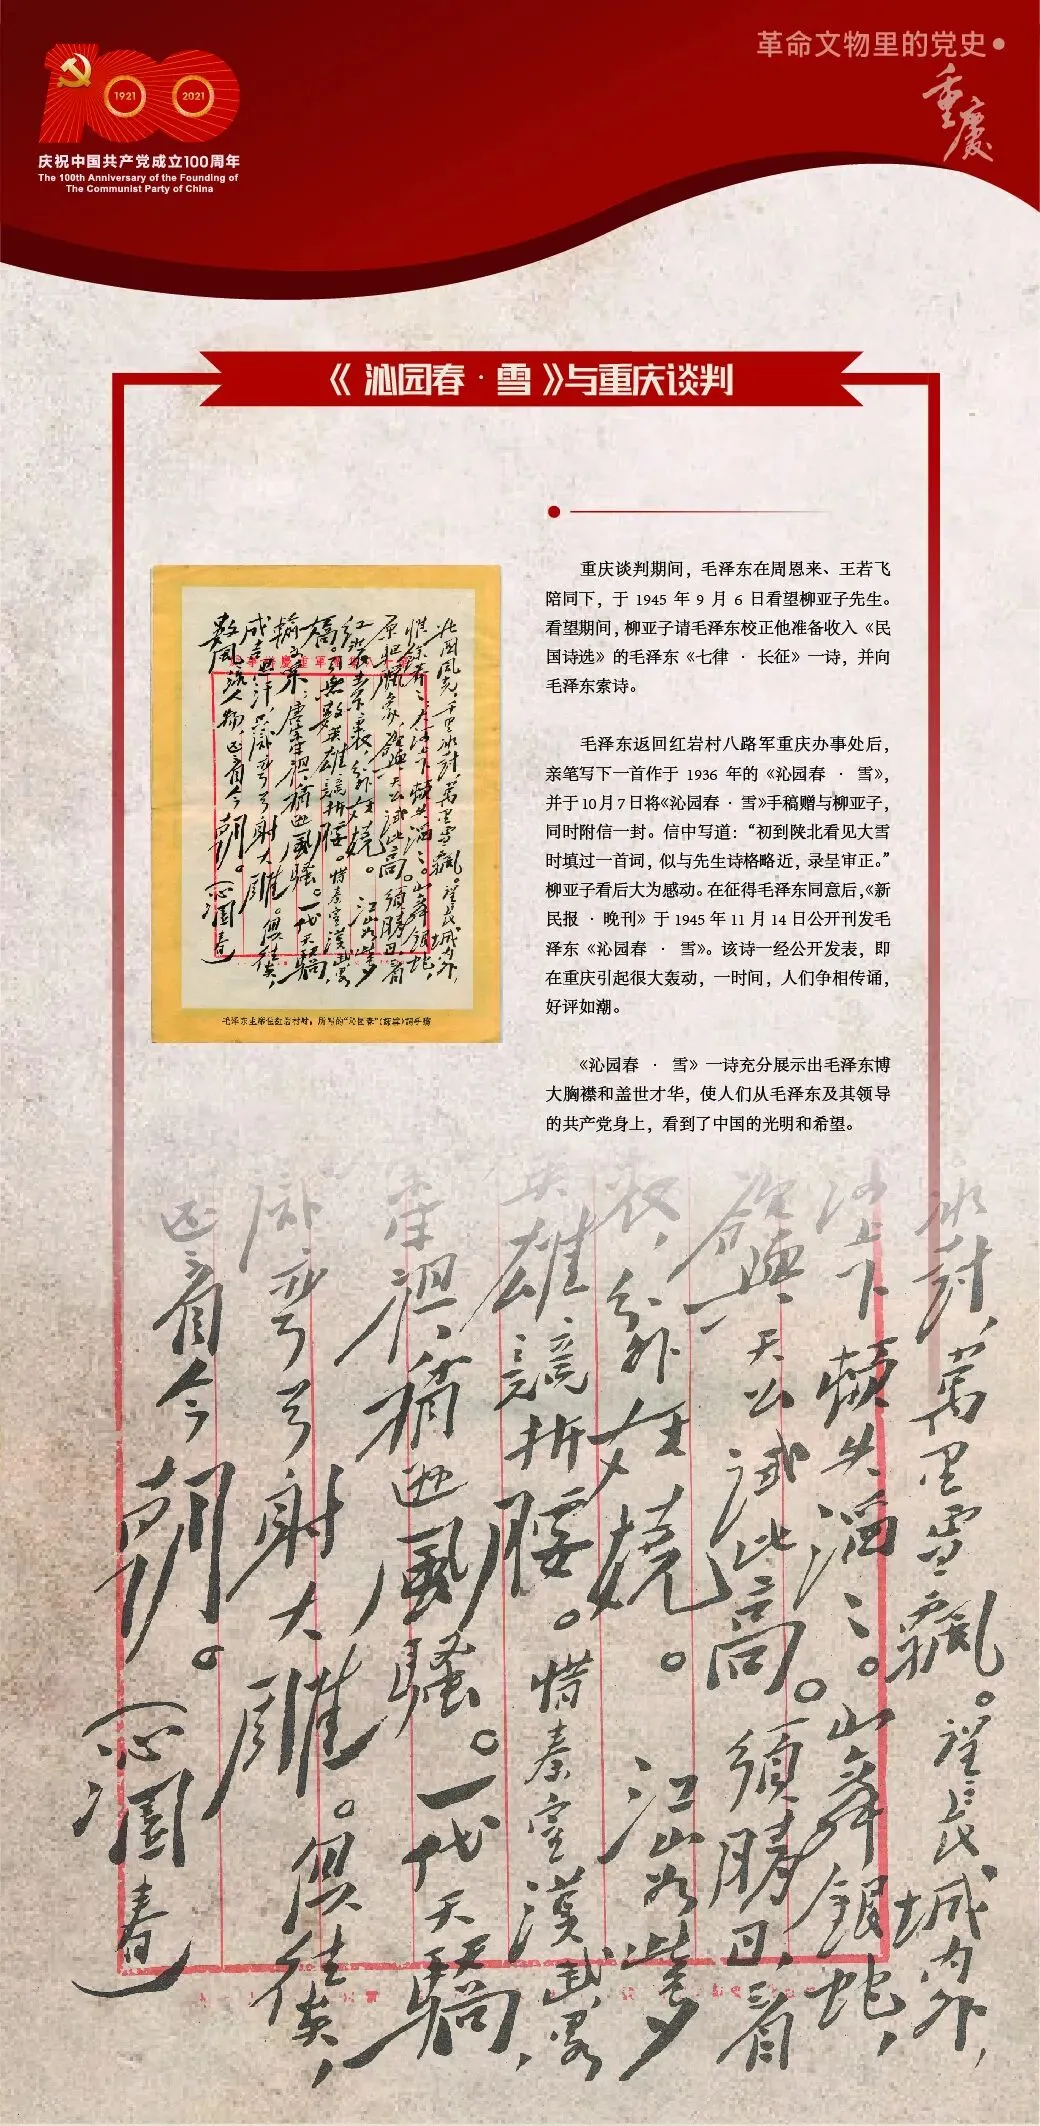 100
1921
2021
庆祝中国共产党成立100周年
The 100th Anniversary of the Founding of
The Communist Party of China
革命文物里的党史•
重慶
《沁园春·雪》与重庆谈判
重庆谈判期间，毛泽东在周恩来、王若飞
陪同下，于 1945 年 9 月 6 日看望柳亚子先生。
看望期间，柳亚子请毛泽东校正他准备收入《民
国诗选》的毛泽东《七律 · 长征》一诗，并向
毛泽东索诗。
毛泽东返回红岩村八路军重庆办事处后，
亲笔写下一首作于 1936 年的《沁园春 · 雪》，
并于10月7日将《沁园春 · 雪》手稿赠与柳亚子，
同时附信一封。信中写道：“初到陕北看见大雪
时填过一首词，似与先生诗格略近，录呈审正。”
柳亚子看后大为感动。在征得毛泽东同意后，《新
民报 · 晚刊》于 1945 年 11 月 14 日公开刊发毛
泽东《沁园春 · 雪》。该诗一经公开发表，即
在重庆引起很大轰动，一时间，人们争相传诵，
好评如潮。
《沁园春 · 雪》一诗充分展示出毛泽东博
大胸襟和盖世才华，使人们从毛泽东及其领导
的共产党身上，看到了中国的光明和希望。
北國風光，千里冰封，萬里雪飄。望長城内外，
惟餘莽莽；大河上下，頓失滔滔。山舞銀蛇，
原驅臘象，欲與天公試比高。須晴日，看
紅裝素裹，分外妖嬈。江山如此多
嬌，引無數英雄競折腰。惜秦皇漢武略
輸文采；唐宗宋祖，稍遜風騷。一代天驕，
成吉思汗，只識彎弓射大雕。俱往矣，
數風流人物，还看今朝。沁園春
冰封，萬里雪飄。望長城内外，
河上下，頓失滔滔。山舞銀蛇，
欲與天公試比高。須晴日，看
裹，分外妖嬈。江山如此多
英雄競折腰。惜秦皇漢武略
宋祖，稍遜風騷。一代天驕，
識彎弓射大雕。俱往矣，
还看今朝。沁園春